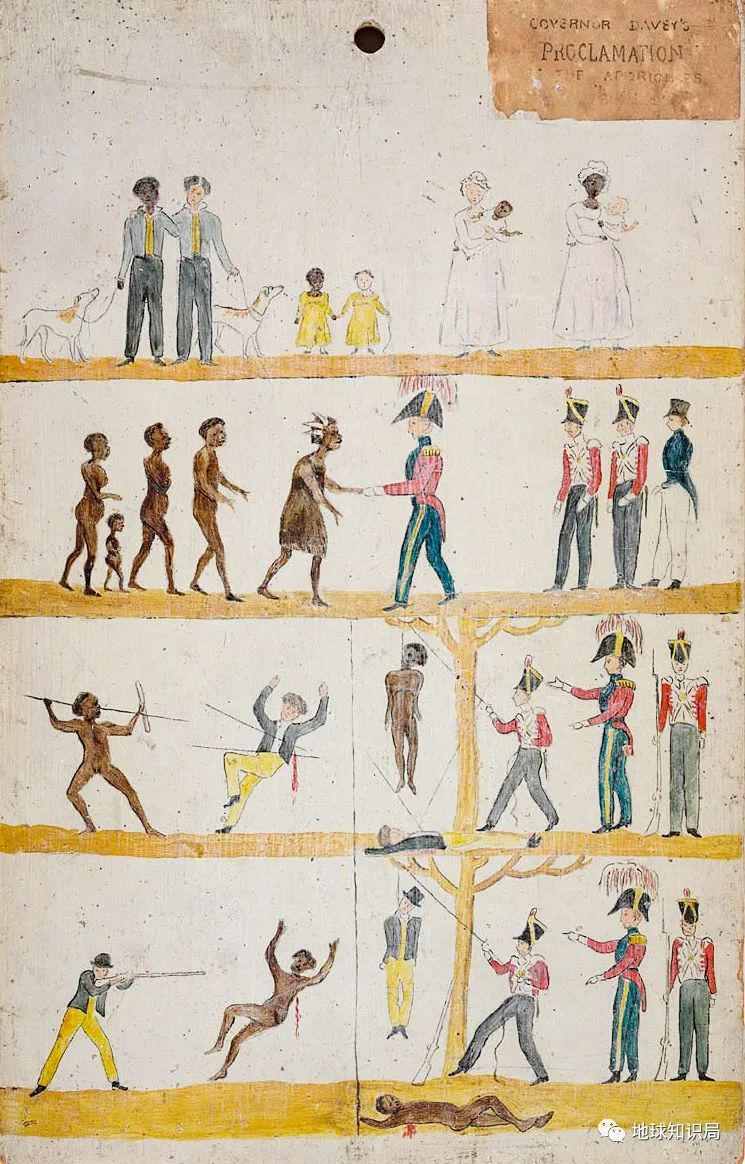 GOVERNOR DAVEY'S
PROCLAMATION
THE ABORIGINES
地球知识局